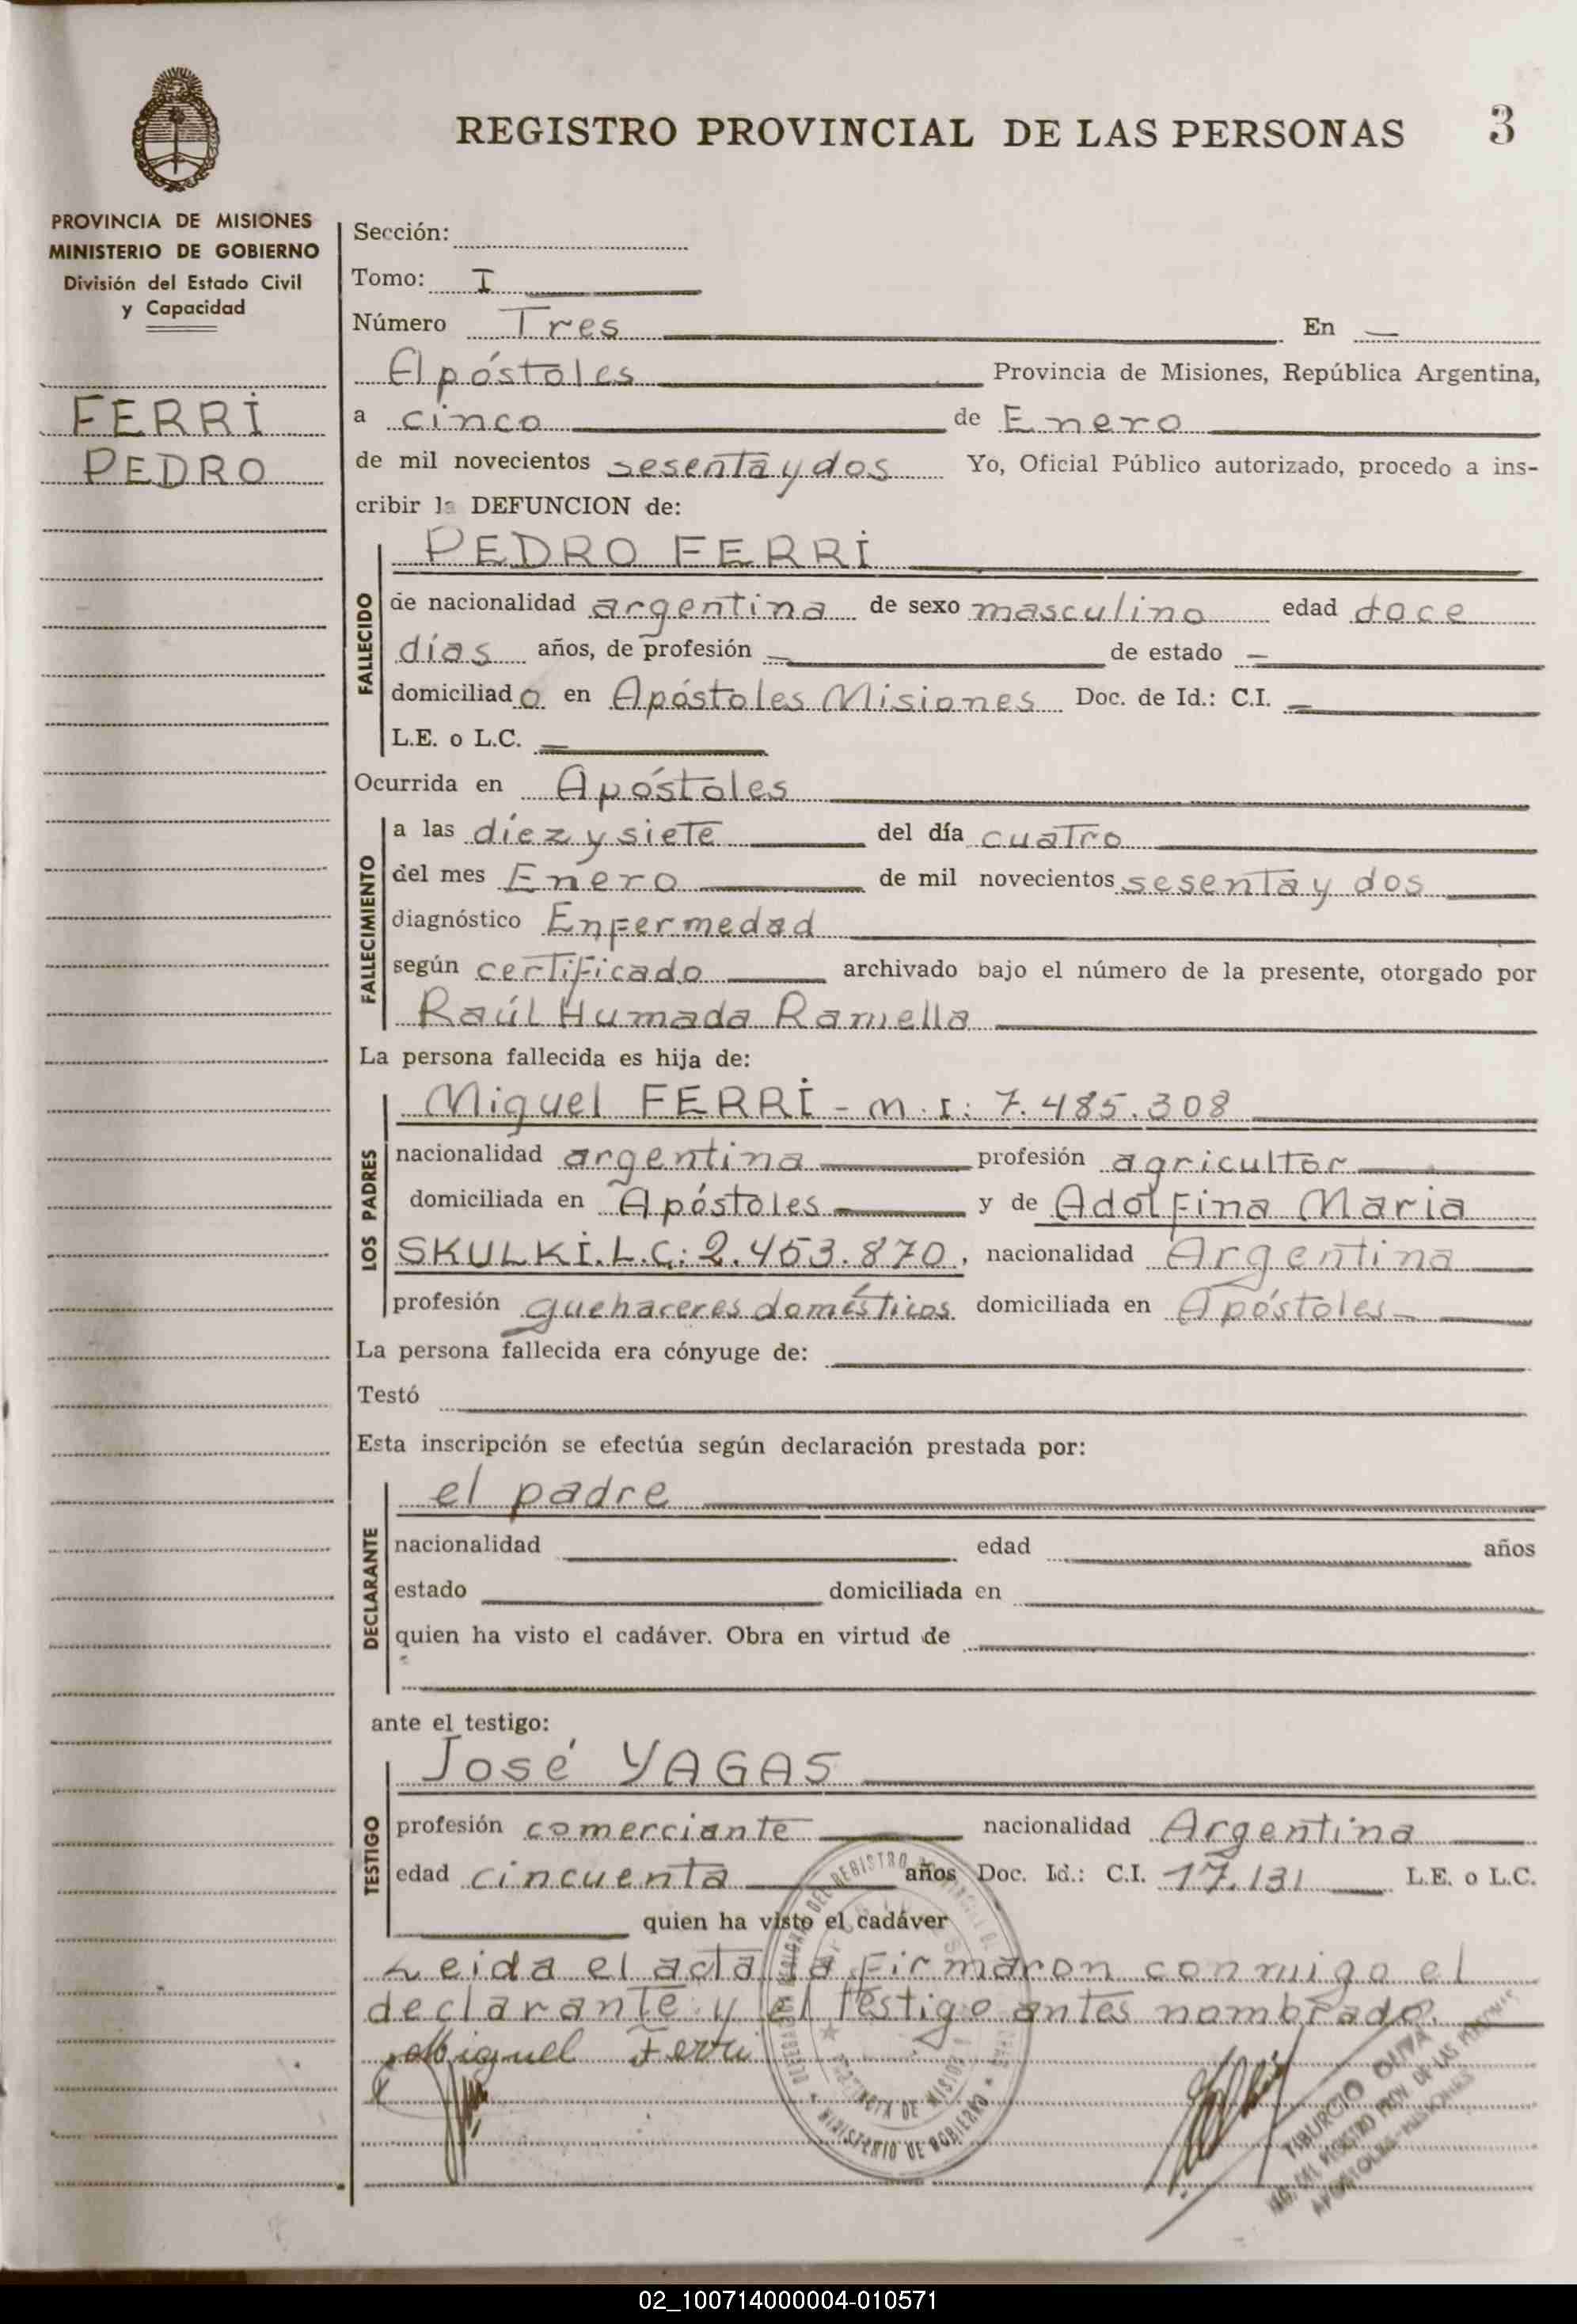 REGISTRO PROVINCIAL DE LAS PERSONAS 3
PROVINCIA DE MISIONES
MINISTERIO DE GOBIERNO
División del Estado Civil
y Capacidad
FERRI
PEDRO
Sección:
Tomo: I
Número Tres En —
Apóstoles Provincia de Misiones, República Argentina,
a cinco de Enero
de mil novecientos sesenta y dos Yo, Oficial Público autorizado, procedo a ins-
cribir la DEFUNCION de:
FALLECIDO
PEDRO FERRI
de nacionalidad argentina de sexo masculino edad doce
días años, de profesión — de estado —
domiciliado en Apóstoles Misiones Doc. de Id.: C.I. —
L.E. o L.C. —
Ocurrida en Apóstoles
FALLECIMIENTO
a las diez y siete del día cuatro
del mes Enero de mil novecientos sesenta y dos
diagnóstico Enfermedad
según certificado archivado bajo el número de la presente, otorgado por
Raúl Humada Ramella
La persona fallecida es hija de:
LOS PADRES
Miguel FERRI - M.I: 7.485.308
nacionalidad argentina profesión agricultor
domiciliada en Apóstoles y de Adolfina Maria
SKULKI. L.C: 2.453.870, nacionalidad Argentina
profesión quehaceres domésticos domiciliada en Apóstoles
La persona fallecida era cónyuge de:
Testó
Esta inscripción se efectúa según declaración prestada por:
DECLARANTE
el padre
nacionalidad edad años
estado domiciliada en
quien ha visto el cadáver. Obra en virtud de
ante el testigo:
TESTIGO
José YAGAS
profesión comerciante nacionalidad Argentina
edad cincuenta años Doc. Id.: C.I. 17.131 L.E. o L.C.
quien ha visto el cadáver
Leida el acta la firmaron conmigo el
declarante y el testigo antes nombrado.
Miguel Ferri
PROVINCIA DE MISIONES
MINISTERIO DE GOBIERNO
TIBURCIO OLIVA
DEL REGISTRO PROV. DE LAS PERSONAS
APOSTOLES - MISIONES
02_100714000004-010571